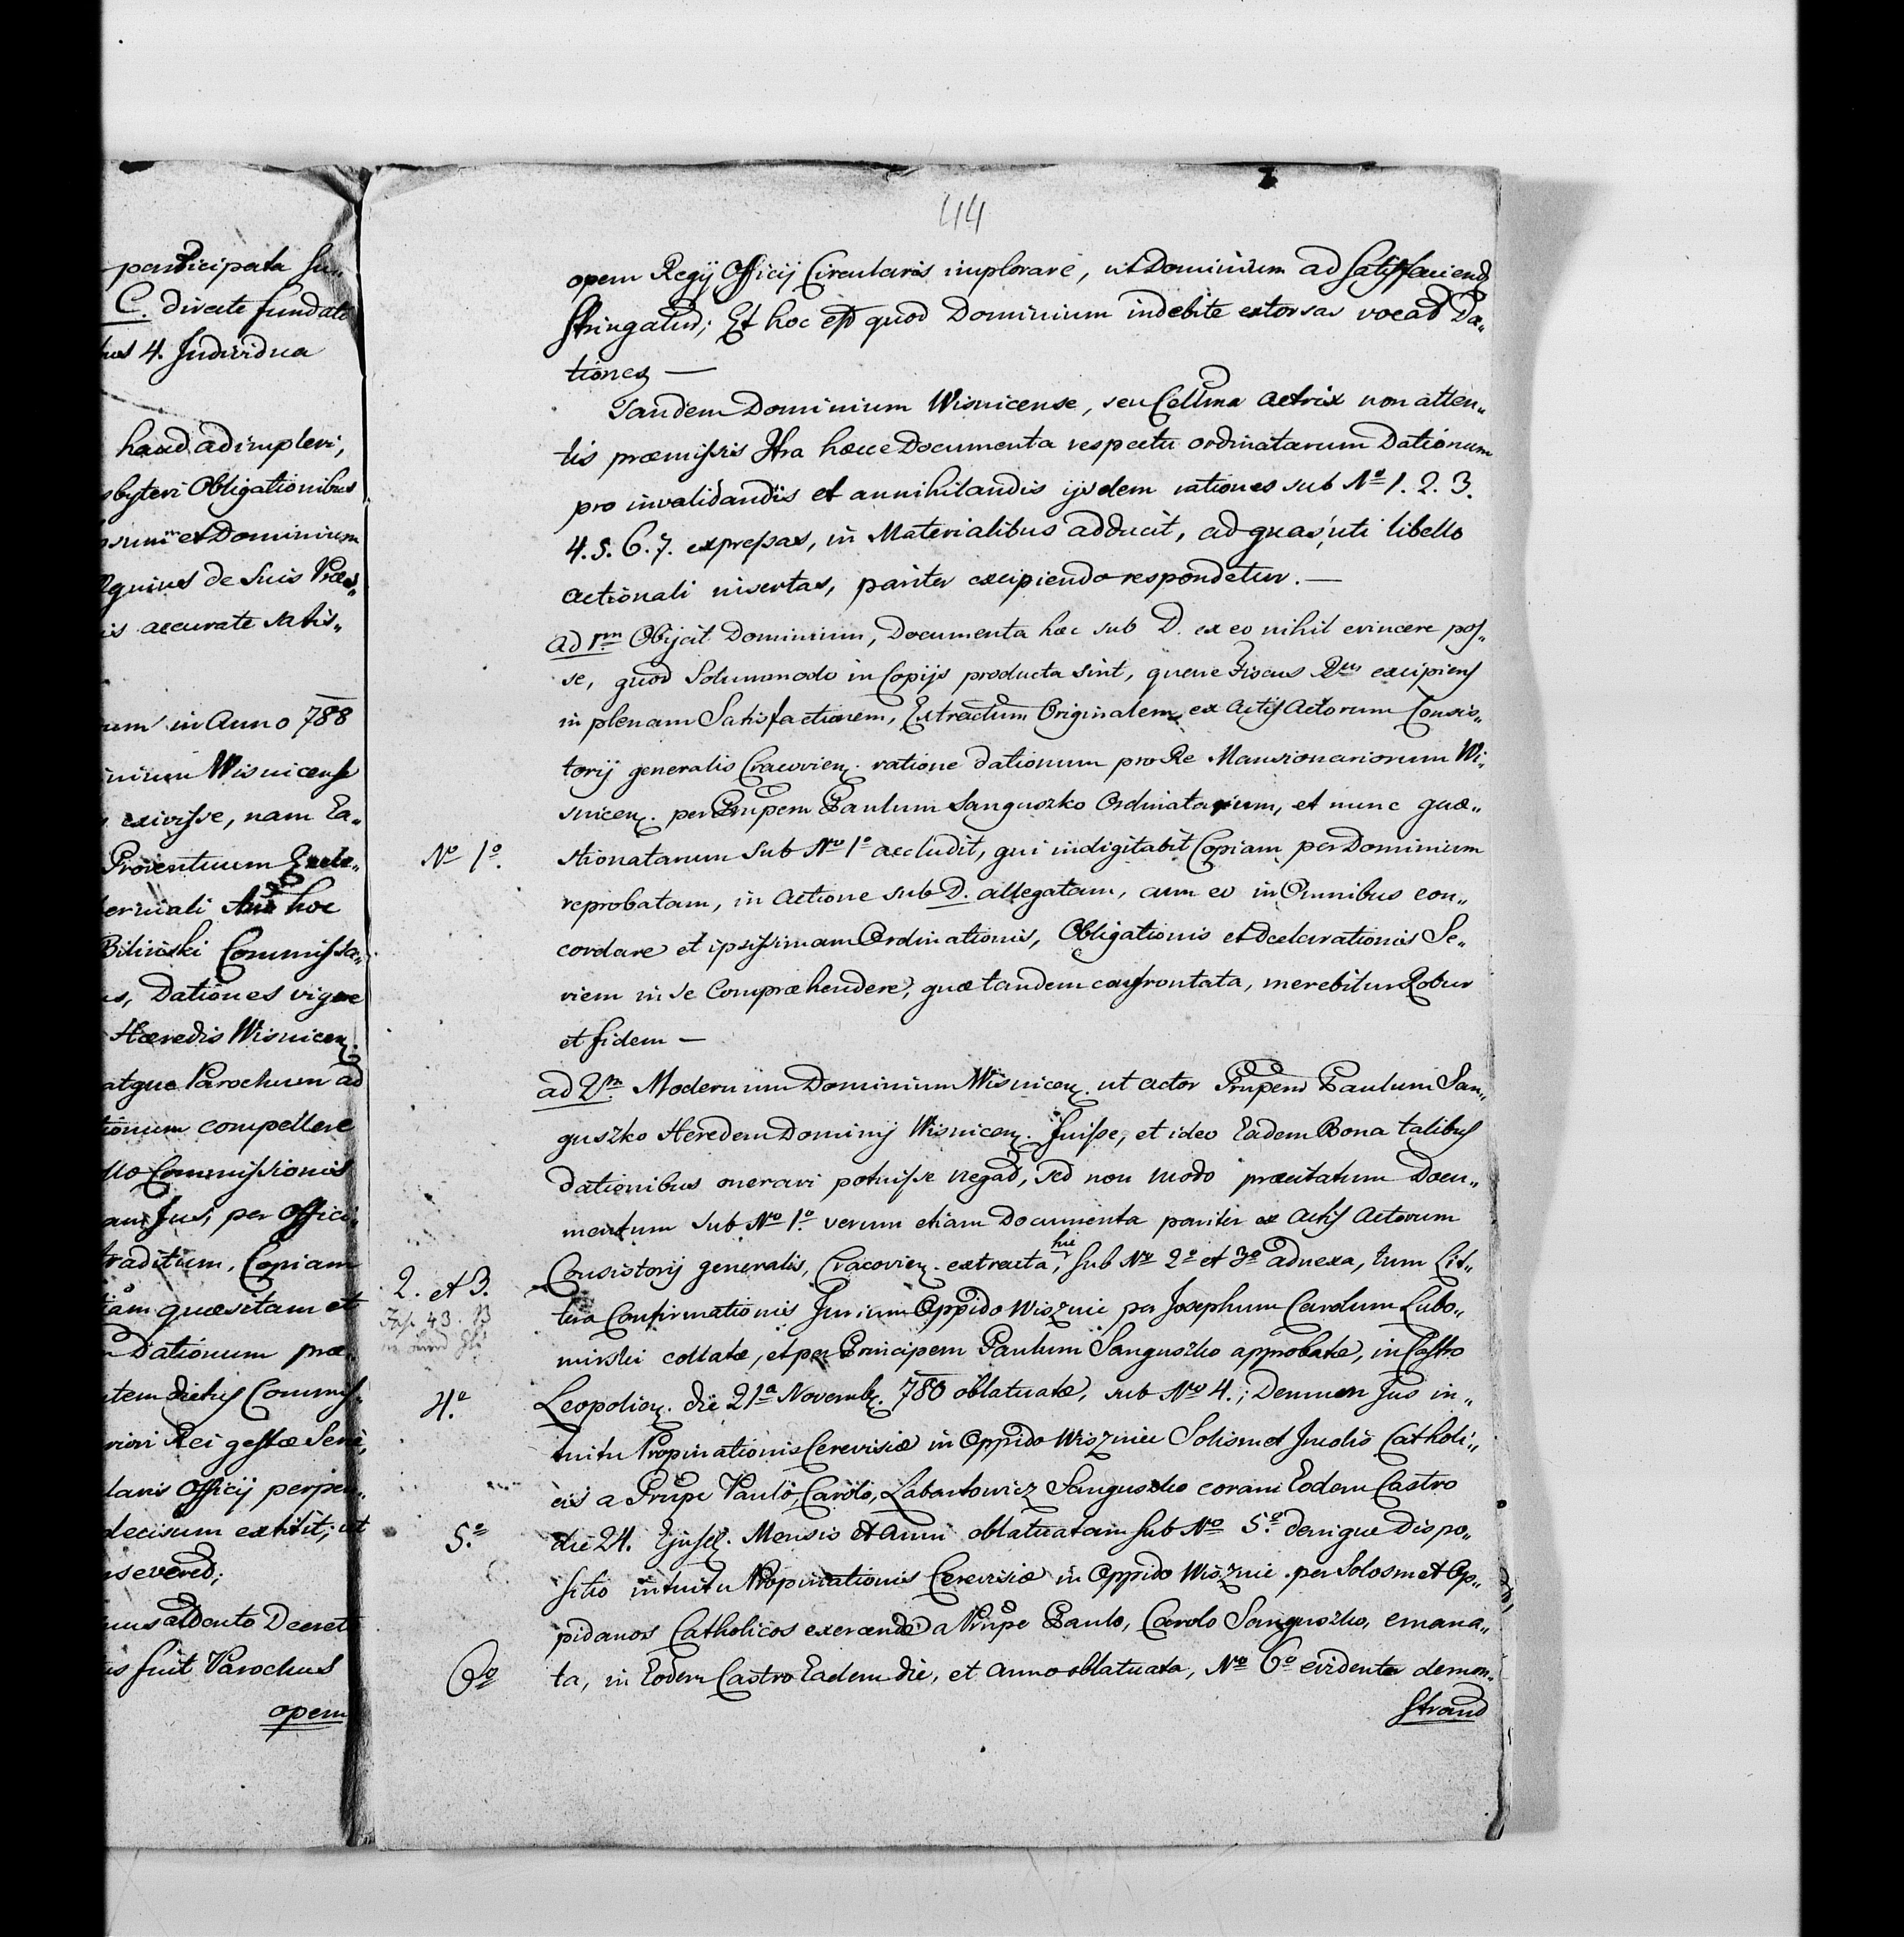 participata su„
C. directe fundato
bus 4. Individua
haud adimpleri,
sbyteri Obligationibus
et Dominium
de Suis Præs„
is accurate satis„
um in Anno 788
inium Wisnicense
exivisse, nam Ea„
Proventuum
ermali hoc
Bilinski Commissa„
s, Dationes vigore
Hæredis Wisnicen.
atque Parochum ad
tionum compellere
Commissionis
Jus, per Offici„
traditum, Copiam
quæsitam et
Dationum præ„
item dictus Commis„
Rei gestæ Seri„
laris Officij perpen„
decisum extitit; ut
severet;
Decreto
is fuit Parochus
opem
44
opem Regij Officij Circularis implorare, ut Dominium ad satisfaciend
stringatur; Et hoc est quod Dominium indebite extorsas vocat Da„
tiones —
Tandem Dominium Wisnicense, seu Cellma Actrix non atten„
tis præmissis Ittra hæcce Documenta respectu ordinatarum Dationum
pro invalidandis et annihilandis ijsdem rationes sub Nº 1. 2. 3.
4. 5. 6. 7. expressas, in Materialibus adducit, ad quas, uti libello
actionali insertas, pariter excipiendo respondetur. —
ad 1m Obijcit Dominium, Documenta hæc sub D. ex eo nihil evincere pos„
se, quod Solummodo in Copijs producta sint, Fiscus Rus excipiens
in plenam Satisfactionem, Extractum Originalem ex Actis Actorum Consis„
torij generalis Cracovien. ratione dationum pro Re Mansionariorum Wi„
snicen. per Prñpem Paulum Sanguszko Ordinatarum, et nunc quæ„
Nº 1º.
stionatarum sub Nº 1º accludit, qui indigitabit Copiam per Dominium
reprobatam, in actione sub D. allegatam, cum eo in Omnibus con„
cordare et ipsissimam Ordinationis, Obligationis et Declarationis Se„
riem in se Compræhendere, quæ tandem confrontata, merebitur Robur
et fidem —
ad 2m. Modernum Dominium Wisnicen. ut actor Prñpem Paulum San„
guszko Heredem Dominij Wisnicen. fuisse, et ideo Eadem Bona talibus
dationibus onerari potuisse negat, sed non modo præcitatum Docu„
mentum sub Nº 1º. verum etiam Documenta pariter ex Actis Actorum
2. et 3.
Consistorij generalis, Cracovien. extracta, hic sub Nº 2º et 3º adnexa, tum Lit„
teræ Confirmationis Jurium Oppido Wisznic per Josephum Carolum Lubo„
mirski collatæ, et per Principem Paulum Sanguszko approbatæ, in Castro
4.º
Leopolien. die 21a Novemb. 780 oblatuatæ, sub Nº 4.; Demum Jus in„
tuitu Propinationis Cerevisiæ in Oppido Wisznice Solismet Incolis Catholi„
cis a Prñpe Paulo, Carolo, Labartowicz Sanguszko coram Eodem Castro
5.º
die 24. Ejusd. Mensis et Anni oblatuatam sub Nº 5.º denique Dispo„
sitio intuitu Propinationis Cerevisiæ in Oppido Wisznic per Solosmet Op„
pidanos Catholicos exercendæ a Prñpe Paulo, Carolo Sanguszko, emana„
6º
ta, in Eodem Castro Eadem die, et Anno oblatuata, Nº 6º evidenter demon„
strant